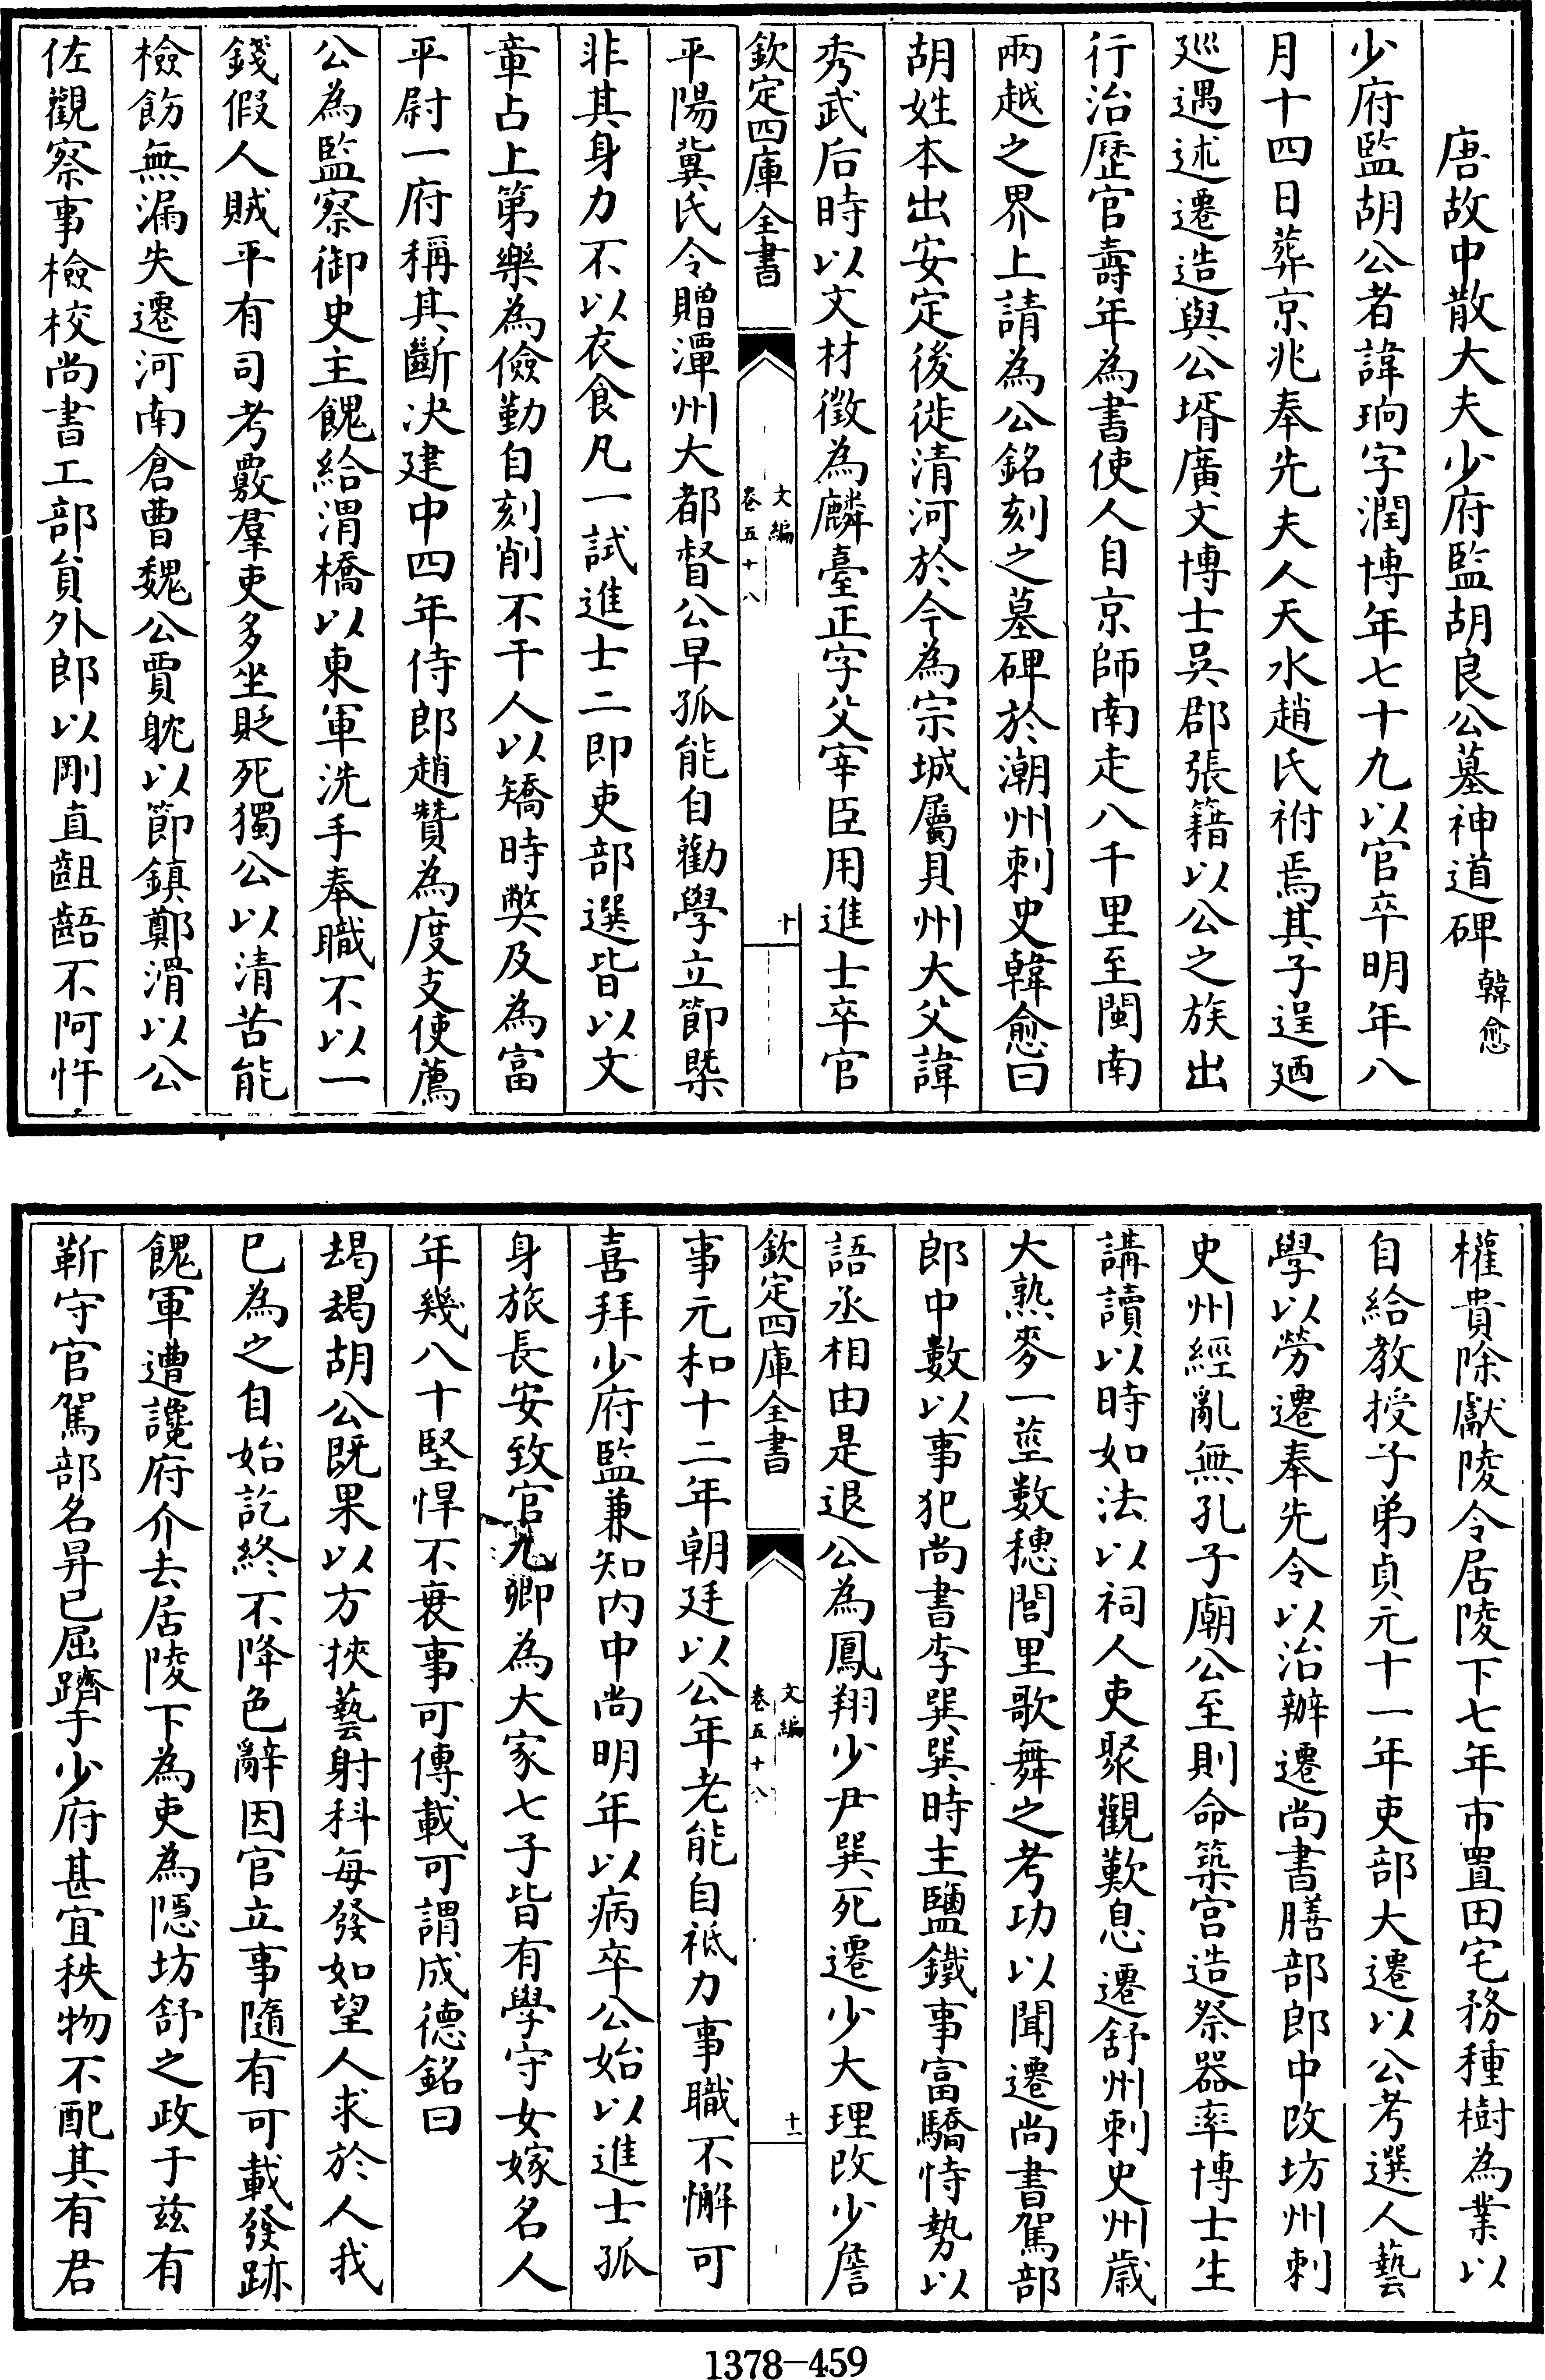 唐故中散大夫少府監胡良公墓神道碑韓愈
少府監胡公者諱珦字潤博年七十九以官卒明年八
月十四日葬京兆奉先夫人天水趙氏祔焉其子逞廼
巡遇述遷造與公壻廣文博士吳郡張籍以公之族出
行治歴官壽年為書使人自京師南走八千里至閩南
兩越之界上請為公銘刻之墓碑於潮州刺史韓愈曰
胡姓本出安定後徙清河於今為宗城屬貝州大父諱
秀武后時以文材徵為麟臺正字父宰臣用進士卒官
欽定四庫全書
文編
卷五十八
十
平陽冀氏令贈潭州大都督公早孤能自勸學立節槩
非其身力不以衣食凡一試進士二即吏部選皆以文
章占上第樂為儉勤自刻削不干人以矯時弊及為富
平尉一府稱其斷決建中四年侍郎趙贊為度支使薦
公為監察御史主餽給渭橋以東軍洗手奉職不以一
錢假人賊平有司考覈羣吏多坐貶死獨公以清苦能
檢飭無漏失遷河南倉曹魏公賈躭以節鎮鄭滑以公
佐觀察事檢校尚書工部員外郎以剛直齟齬不阿忤
權貴除獻陵令居陵下七年市置田宅務種樹為業以
自給教授子弟貞元十一年吏部大遷以公考選人藝
學以勞遷奉先令以治辦遷尚書膳部郎中改坊州刺
史州經亂無孔子廟公至則命築宮造祭器率博士生
講讀以時如法以祠人吏聚觀歎息遷舒州刺史州歲
大熟麥一莖數穗閭里歌舞之考功以聞遷尚書駕部
郎中數以事犯尚書李巽巽時主鹽鐵事富驕恃勢以
語丞相由是退公為鳳翔少尹巽死遷少大理改少詹
欽定四庫全書
文編
卷五十八
十一
事元和十二年朝廷以公年老能自祗力事職不懈可
喜拜少府監兼知内中尚明年以病卒公始以進士孤
身旅長安致官九卿為大家七子皆有學守女嫁名人
年幾八十堅悍不衰事可傳載可謂成德銘曰
朅朅胡公既果以方挾藝射科每發如望人求於人我
已為之自始訖終不降色辭因官立事隨有可載發跡
餽軍遭讒府介去居陵下為吏為隱坊舒之政于兹有
靳守官駕部名昇已屈躋于少府甚宜秩物不配其有君
1378-459